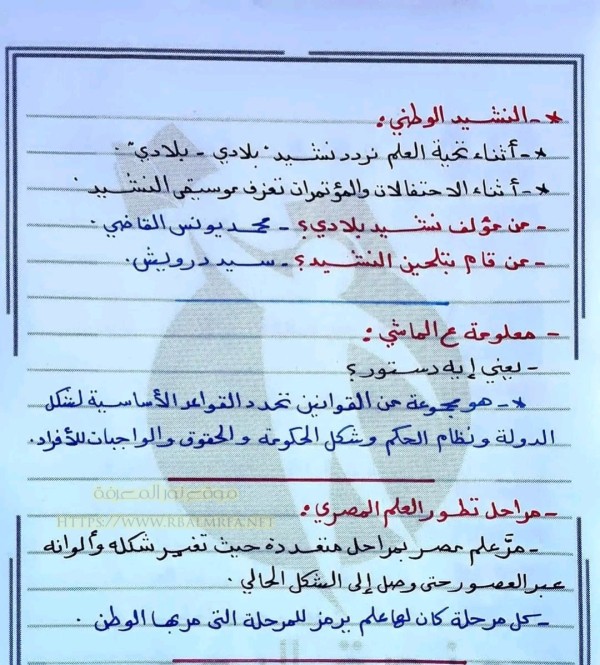 *- النشيد الوطني:
*- أثناء تحية العلم نردد نشيد "بلادي - بلادي".
*- أثناء الاحتفالات والمؤتمرات تعزف موسيقى النشيد.
- من مؤلف نشيد بلادي؟ - محمد يونس القاضي.
- من قام بتلحين النشيد؟ - سيد درويش.
- معلومة ع الماشي:
- يعني إيه دستور؟
*- هو مجموعة من القوانين تحدد القواعد الأساسية لشكل
الدولة ونظام الحكم وشكل الحكومة والحقوق والواجبات للأفراد.
موقع نور المعرفة
HTTPS://WWW.RBALMRFA.NET
- مراحل تطور العلم المصري:
- مرَّ علم مصر بمراحل متعددة حيث تغير شكله وألوانه
عبر العصور حتى وصل إلى الشكل الحالي.
- كل مرحلة كان لها علم يرمز للمرحلة التى مر بها الوطن.